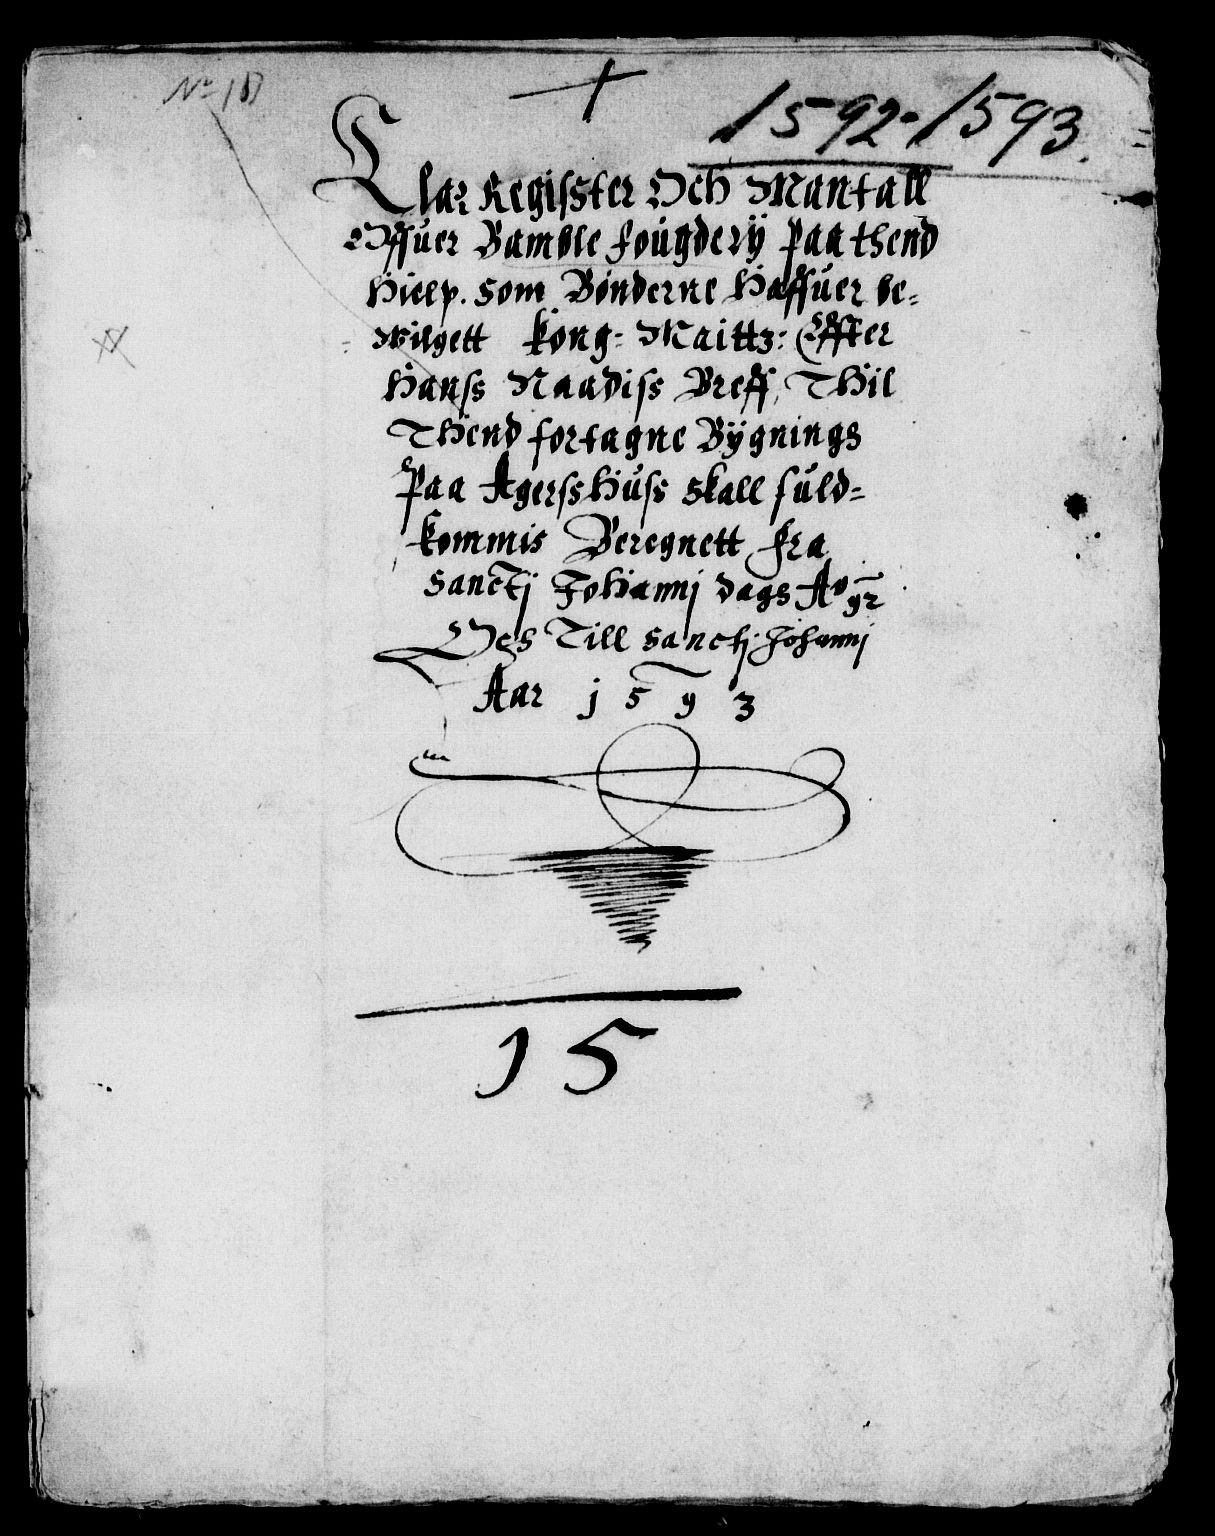 N° 18
1592-1593.
Clar Regisster Och Mantall
Offuer Bamble fougderÿ Paa thend
Hielp. som Bønderne Haffuer be=
wilgett Kong: Maittz: Effter
Hanss Naadiss Breff, Thil
Thend fortagne Bÿgnings
Paa AgerssHuss skall fuld=
kommis Beregnett fra
sanctj Johannj dags A° 92
Och Till sanctj Johannj
Aar 1593
15